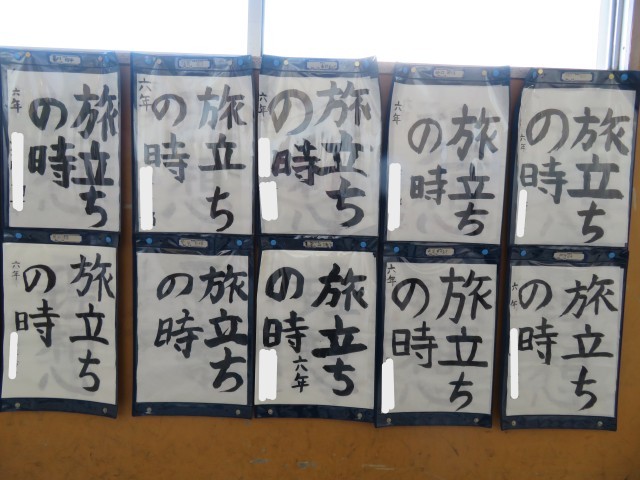 旅立ち
の時
六年
旅立ち
の時
六年
旅立ち
の時
六年
旅立ち
の時
六年
旅立ち
の時
六年
旅立ち
の時
六年
旅立ち
の時
旅立ち
の時
六年
旅立ち
の時
六年
旅立ち
の時
六年